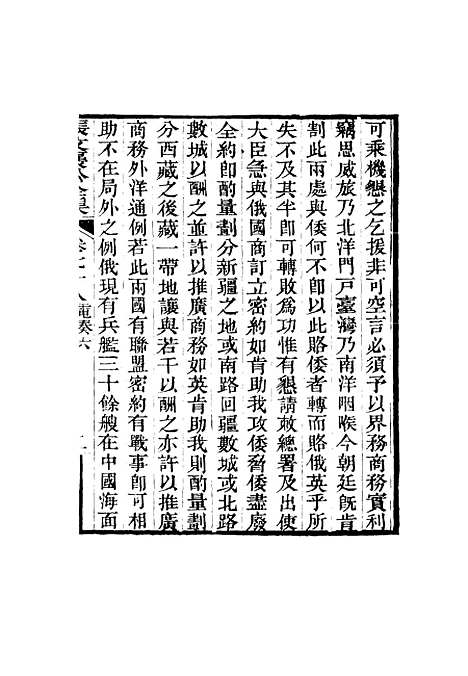 可乘機懇之乞援非可空言必須予以界務商務實利
竊思威旅乃北洋門戸臺灣乃南洋咽喉今朝廷旣肯
割此兩處與倭何不卽以此賂倭者轉而賂俄英乎所
失不及其半卽可轉敗爲功惟有懇請敕總署及出使
大臣急與俄國商訂立密約如肯助我攻倭脅倭盡廢
全約卽酌量劃分新疆之地或南路回疆數城或北路
數城以酬之並許以推廣商務如英肯助我則酌量劃
分西藏之後藏一帶地讓與若干以酬之亦許以推廣
商務外洋通例若此兩國有聯盟密約有戰事卽可相
助不在局外之例俄現有兵艦三十餘艘在中國海面
張文襄公全集 卷七十八 電奏六